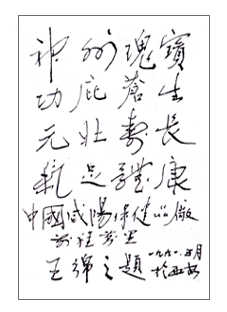 神州瑰寶
功庇蒼生
元壯壽長
氣足體康
中國咸陽保健品廠
王綿之題 一九九一·五月
於西安